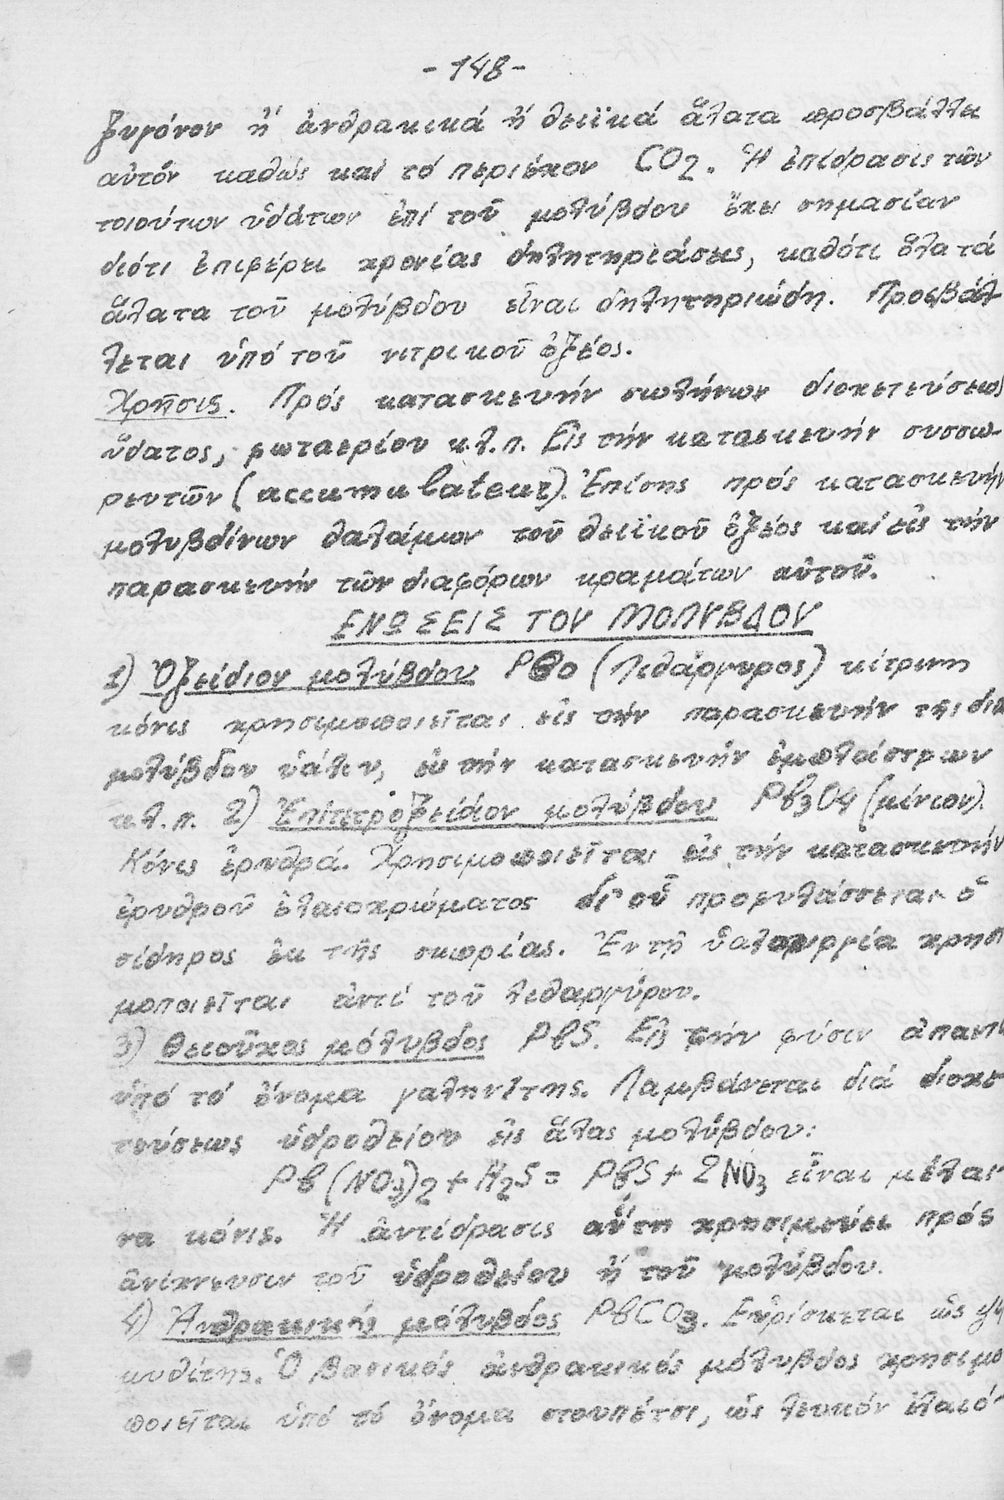 -148-
ξυγόνον ἤ ἀνθρακικά ἤ θειϊκά ἅλατα προσβάλλει
αὐτόν καθώς καί τό περιέχον CO2. Ἡ ἐπίδρασις τῶν
τοιούτων ὑδάτων ἐπί τοῦ μολύβδου ἔχει σημασίαν
διότι ἐπιφέρει χρονίας δηλητηριάσεις, καθότι ὅλα τά
ἅλατα τοῦ μολύβδου εἶναι δηλητηριώδη. Προσβάλ
λεται ὑπό τοῦ νιτρικοῦ ὀξέος.
Χρῆσις. Πρός κατασκευήν σωλήνων διοχετεύσεως
ὕδατος, φωταερίου κ.λ.π. Εἰς τήν κατασκευήν συσσω-
ρευτῶν (accumulateurs). Ἐπίσης πρός κατασκευήν
μολυβδίνων θαλάμων τοῦ θειϊκοῦ ὀξέος καί εἰς τήν
παρασκευήν τῶν διαφόρων κραμάτων αὐτοῦ.
ΕΝΩΣΕΙΣ ΤΟΥ ΜΟΛΥΒΔΟΥ
1) Ὀξείδιον μολύβδου PbO (Λιθάργυρος) κίτρινη
κόνις χρησιμοποιεῖται εἰς τήν παρασκευήν τῆς διά
μολύβδου ὑάλου, εἰς τήν κατασκευήν ἐμπλάστρων
κ.λ.π. 2) Ἐπιτετροξείδιον μολύβδου Pb3O4 (μίνιον).
Κόνις ἐρυθρά. Χρησιμοποιεῖται εἰς τήν κατασκευήν
ἐρυθροῦ ἐλαιοχρώματος δι' οὗ προφυλάσσεται ὁ
σίδηρος ἐκ τῆς σκωρίας. Ἐν τῇ ὑαλουργία χρησι
μοποιεῖται ἀντί τοῦ λιθαργύρου.
3) Θειοῦχος μόλυβδος PbS. Εἰς τήν φύσιν ἀπαντᾶ
ὑπό τό ὄνομα γαληνίτης. Λαμβάνεται διά διοχε
τεύσεως ὑδροθείου εἰς ἅλας μολύβδου:
Pb(NO3)2 + H2S = PbS + 2NO3 εἶναι μέλαι-
να κόνις. Ἡ ἀντίδρασις αὕτη χρησιμεύει πρός
ἀνίχνευσιν τοῦ ὑδροθείου ἤ τοῦ μολύβδου.
4) Ἀνθρακικός μόλυβδος PbCO3. Εὑρίσκεται ὡς ψιμ
μυθίτης. Ὁ βασικός ἀνθρακικός μόλυβδος χρησιμο
ποιεῖται ὑπό τό ὄνομα στουπέτσι, ὡς λευκόν ἐλαιό-